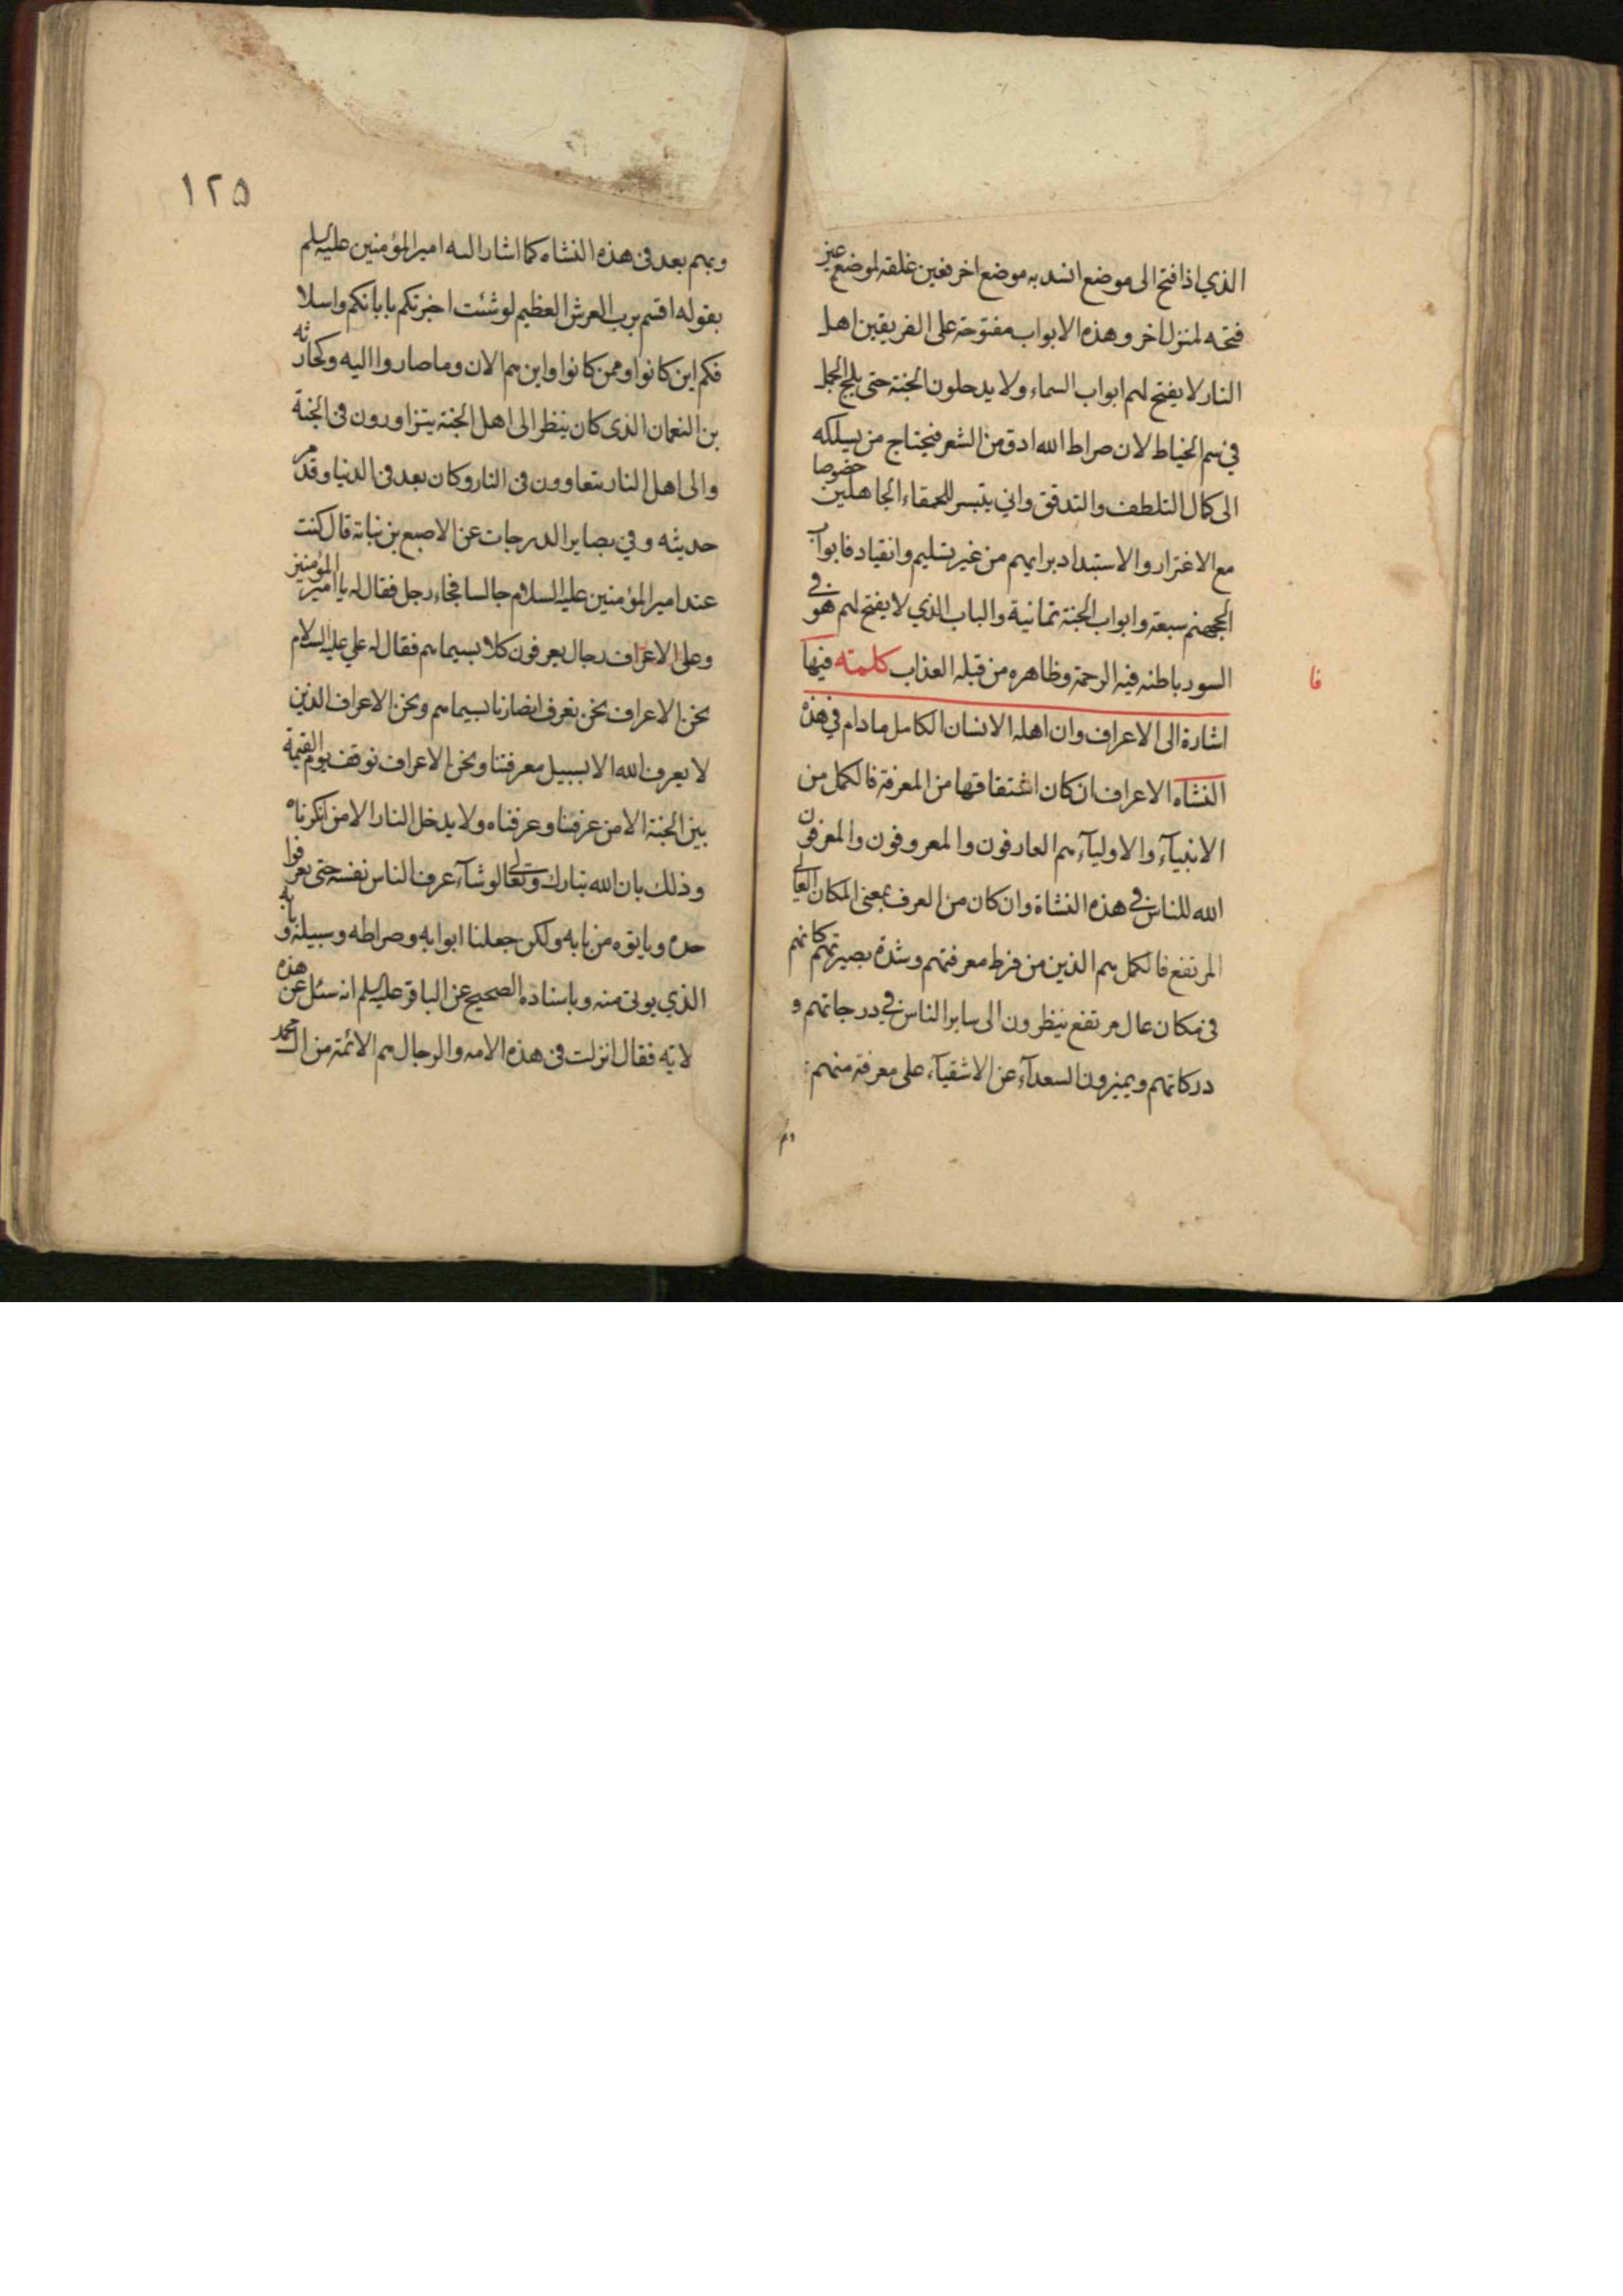 الذي اذا فتح الى موضع انسد به موضع اخر فعين غلقه لموضع عين
فتحه لمنزل اخر وهذه الابواب مفتوحة على الفريقين اهل
النار لا يفتح لهم ابواب السماء ولا يدخلون الجنة حتى يلج الجمل
في سم الخياط لان صراط الله ادق من الشعر فيحتاج من يسلكه
الى كمال التلطف والتدقق واني يتيسر للحمقاء الجاهلين خصوصا
مع الاغترار والاستبداد برايهم من غير تسليم وانقياد فابواب
الجهنم سبعة وابواب الجنة ثمانية والباب الذي لا يفتح لهم هو في
السور باطنه فيه الرحمة وظاهره من قبله العذاب كلمته فيها
فا
اشارة الى الاعراف وان اهله الانسان الكامل مادام في هذه
النشاه الاعراف ان كان اشتقاقها من المعرفة فالكمل من
الانبيآء والاوليآء هم العارفون والمعروفون والمعرفون
الله للناس في هذه النشاة وان كان من العرف بمعنى المكان العالي
المرتفع فالكمل هم الذين من فرط معرفتهم وشدة بصيرتهم كانهم
في مكان عال مرتفع ينظرون الى ساير الناس في درجاتهم و
دركاتهم ويميزون السعدآء عن الاشقيآء على معرفة منهم
وهم
١٢٥
وبهم بعد في هذه النشاه كما اشار اليه امير المؤمنين عليه السلم
بقوله اقسم برب العرش العظيم لو شئت اخبرتكم بابائكم واسلا
فكم اين كانوا وممن كانوا واين هم الان وما صاروا اليه وكحارثه
بن النعمان الذي كان ينظر الى اهل الجنة يتزاورون في الجنة
والى اهل النار يتعاوون في النار وكان بعد في الدنيا وقد مر
حديثه وفي بصاير الدرجات عن الاصبع بن نباتة قال كنت
عند امير المؤمنين عليه السلام جالسا فجاء رجل فقال له يا امير المؤمنين
وعلى الاعراف رجال يعرفون كلا بسيماهم فقال له علي عليه السلام
نحن الاعراف نحن نعرف انصارنا بسيماهم ونحن الاعراف الذين
لا يعرف الله الا بسبيل معرفتنا ونحن الاعراف نوقف يوم القيمة
بين الجنة الا من عرفنا وعرفناه ولا يدخل النار الا من انكرناه
وذلك بان الله تبارك وتعالى لو شآء عرف الناس نفسه حتى يعرفوا
حده ويايتوه من بابه ولكن جعلنا ابوابه وصراطه وسبيله و بابه
الذي يوتى منه وباسناده الصحيح عن الباقر عليه السلم انه سئل عن هذه
لايه فقال انزلت في هذه الامه والرجال هم الائمة من ال محمد